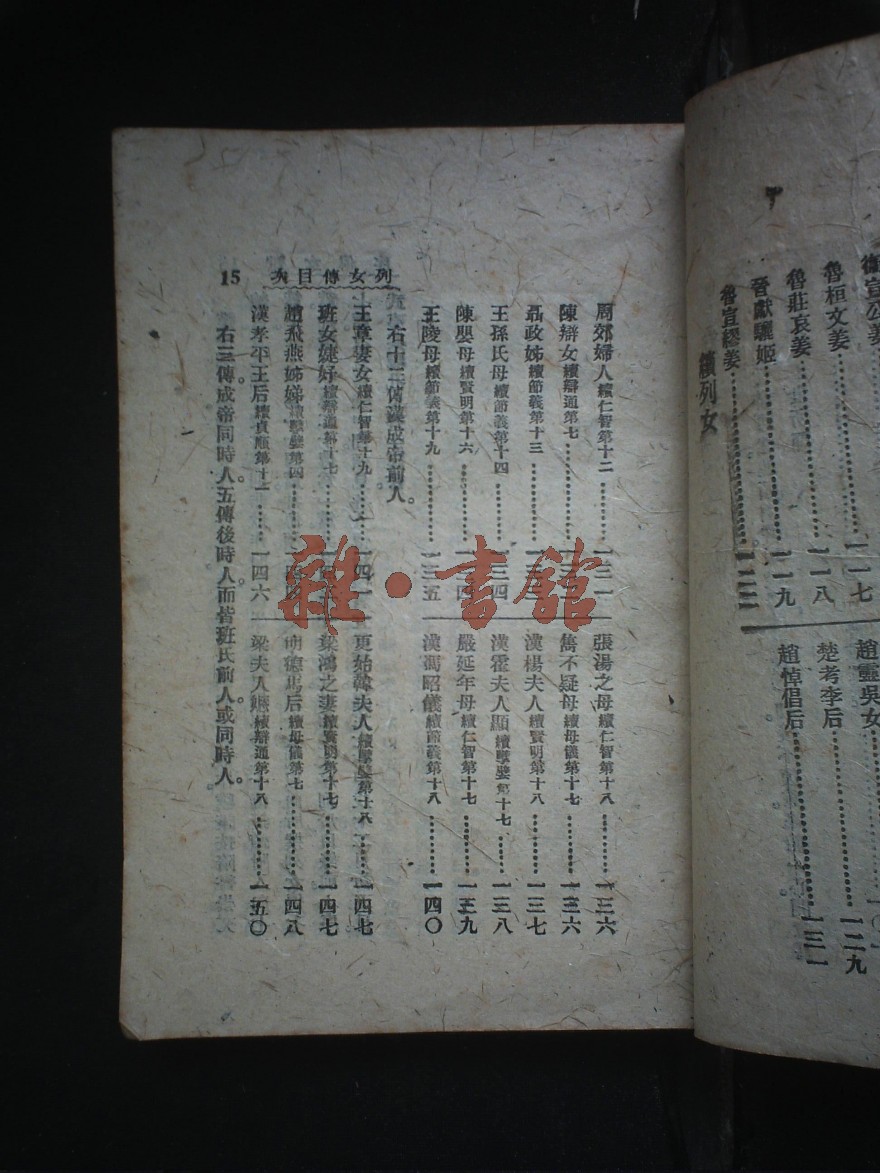 衛宣公姜
魯桓文姜……一一七
魯莊哀姜……一一八
晉獻驪姬……一一九
魯宣繆姜……一二二
趙靈吳女
楚考李后……一二九
趙悼倡后……一三一
續列女
周郊婦人續仁智第十二……一三一
陳辯女續辯通第七……一三二
聶政姊續節義第十三……一三三
王孫氏母續節義第十四……一三四
陳嬰母續賢明第十六……一三四
王陵母續節義第十九……一三五
張湯之母續仁智第十八……一三六
雋不疑母續母儀第十七……一三六
漢楊夫人續賢明第十八……一三七
漢霍夫人顯續孽嬖第十七……一三八
嚴延年母續仁智第十七……一三九
漢馮昭儀續節義第十八……一四〇
右十二傳漢成帝前人。
王章妻女續仁智第十九……一四一
班女婕妤續辯通第十七……一四
趙飛燕姊娣續孽嬖第四……一四
漢孝平王后續貞順第十一……一四六
更始韓夫人續孽嬖第十八……一四七
梁鴻之妻續賢明第十七……一四七
明德馬后續母儀第七……一四八
梁夫人嫕續辯通第十八……一五〇
右三傳成帝同時人。五傳後時人。而皆班氏前人或同時人。
列女傳目次
15
雜·書館